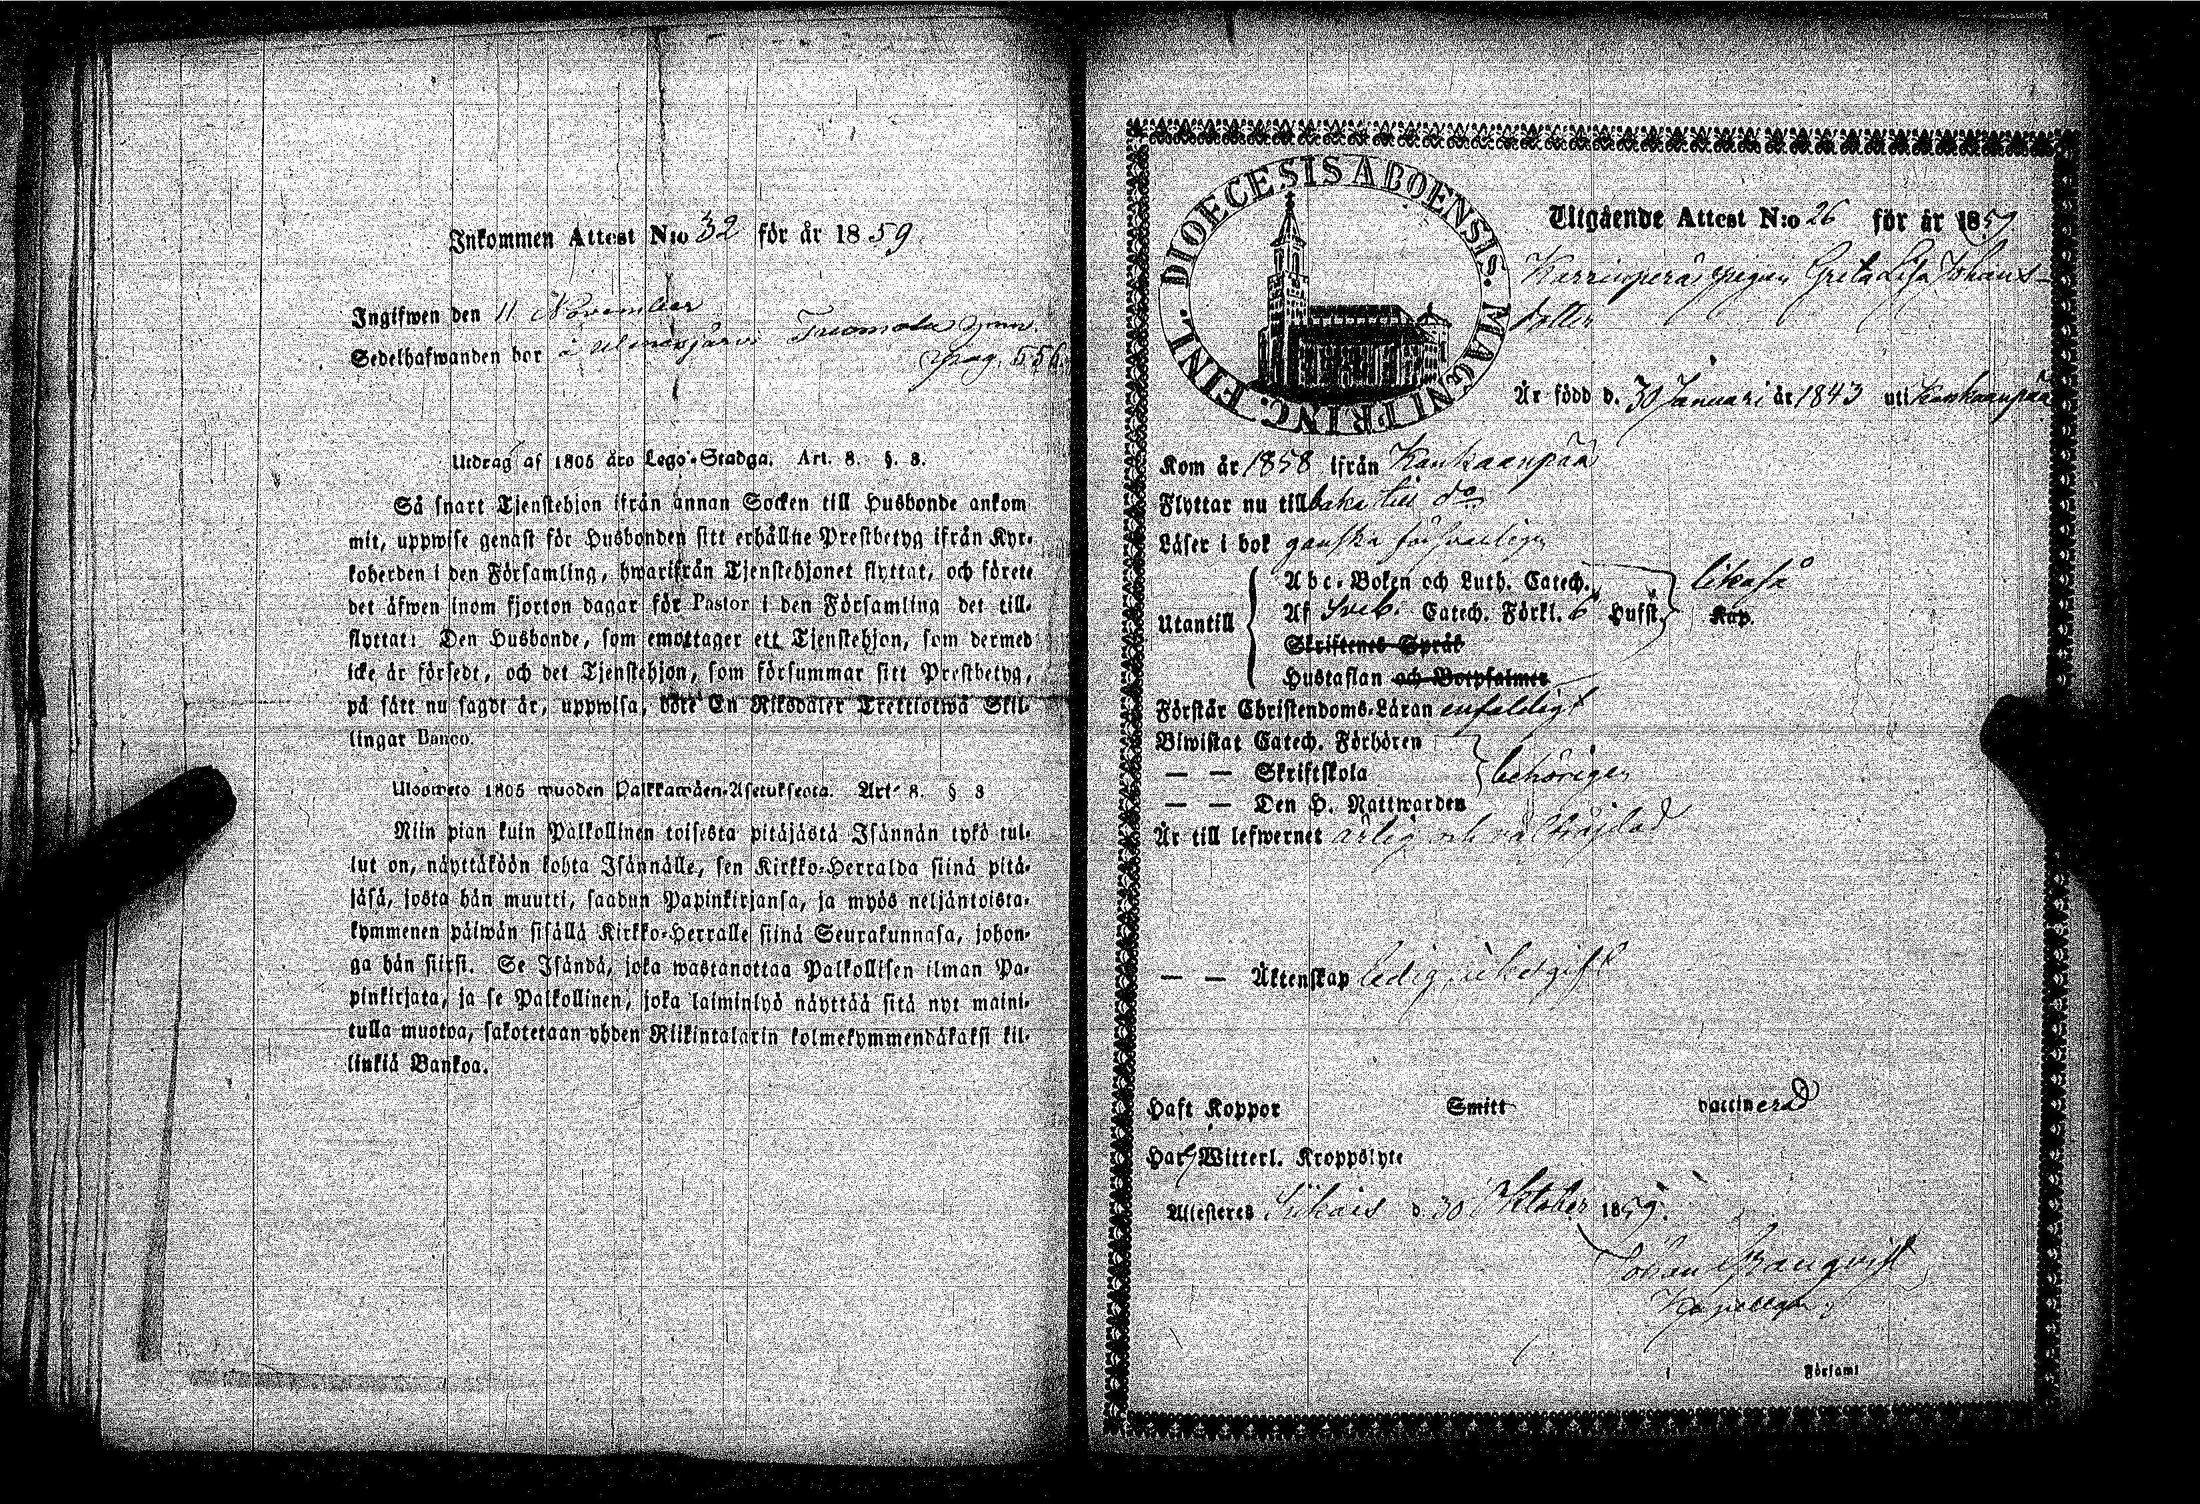 Inkommen Attest N:o 32 för år 1859
Ingifwen den 11 November
Sedelhafwanden bor å
pag. 556.
Utdrag af 1805 års Lego-Stadga. Art. 8. §. 3.
Så snart Tjenstehjon ifrån annan Socken till Husbonde ankom
mit, uppwise genast för Husbonden sitt erhållne Prestbetyg ifrån Kyr-
koherden i den Församling, hwarifrån Tjenstehjonet flyttat, och förete
det äfwen inom fjorton dagar för Pastor i den Församling det till-
flyttat: Den Husbonde, som emottager ett Tjenstehjon, som dermed
icke är försedt, och det Tjenstehjon, som försummar sitt Prestbetyg,
på sätt nu sagdt är, uppwisa, böte En Riksdaler Trettiotwå Skil-
lingar Banco.
Ulosweto 1805 wuoden Palkkawäen-Asetuksesta. Art. 8. § 3
Niin pian kuin Palkollinen toisesta pitäjästä Isännän tykö tul-
lut on, näyttäköön kohta Isännälle, sen Kirkko-Herralda siinä pitä-
jäsä, josta hän muutti, saadun Papinkirjansa, ja myös neljäntoista-
kymmenen päiwän sisällä Kirkko-Herralle siinä Seurakunnasa, johon-
ga hän siirsi. Se Isändä, joka wastanottaa Palkollisen ilman Pa-
pinkirjata, ja se Palkollinen, joka laiminlyö näyttää sitä nyt maini-
tulla muotoa, sakotetaan yhden Riikintalarin kolmekymmendäkaksi kil-
linkiä Bankoa.
DIOECESIS ABOENSIS. MAGNI PRINC. FINL.
Utgående Attest N:o 26 för år 1859
pigan Greta Lisa Johans-
dotter
Är född d. 30 Januari år 1843 uti Kankaanpää
Kom år 1858 ifrån Kankaanpää
Flyttar nu tillbaka till do
Läser i bok ganska försvarligen
Utantill
Abc-Boken och Luth. Catech.
Af Sveb. Catech. Förkl. 6 Hufst. Kap.
likaså
Skriftenes Språk
Hustaflan och Botpsalmer
Förstår Christendoms-Läran enfaldigt
Biwistat Catech. Förhören
— — Skriftskola
behörigen
— — Den H. Nattwarden
Är till lefwernet ärlig och väl fräjdad
— — Äktenskap ledig, icke gift
Haft Koppor Smitt vaccinerad
Har Witterl. Kroppslyte
Attesteres Siikais d. 30 Oktober 1859.
Johan
Kapellan
Församl